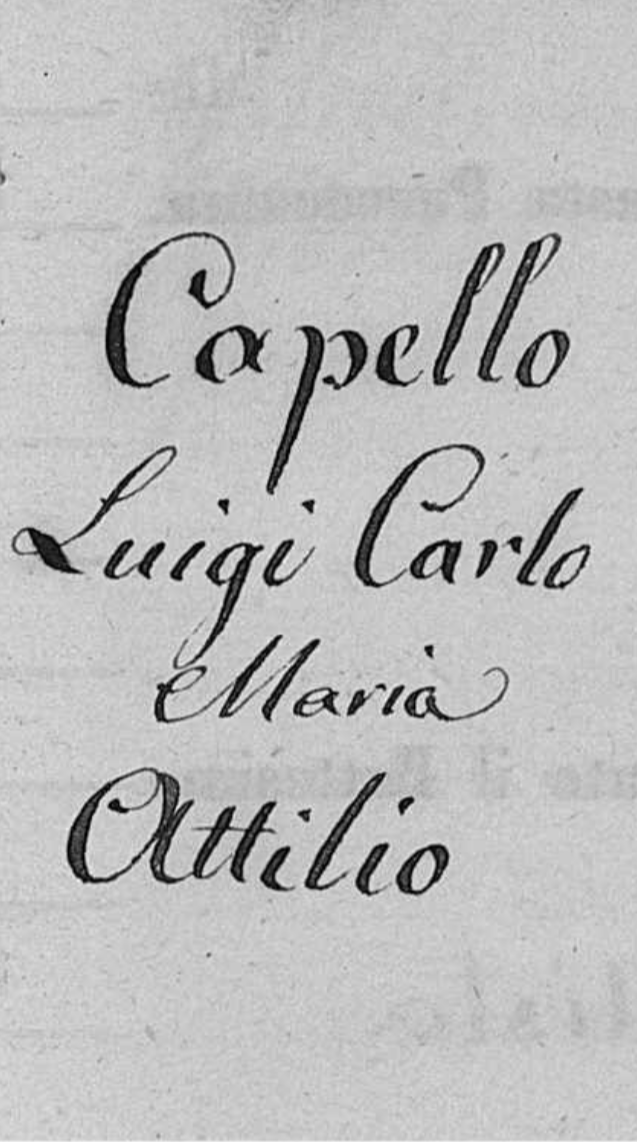 Capello
Luigi Carlo
Maria
Attilio